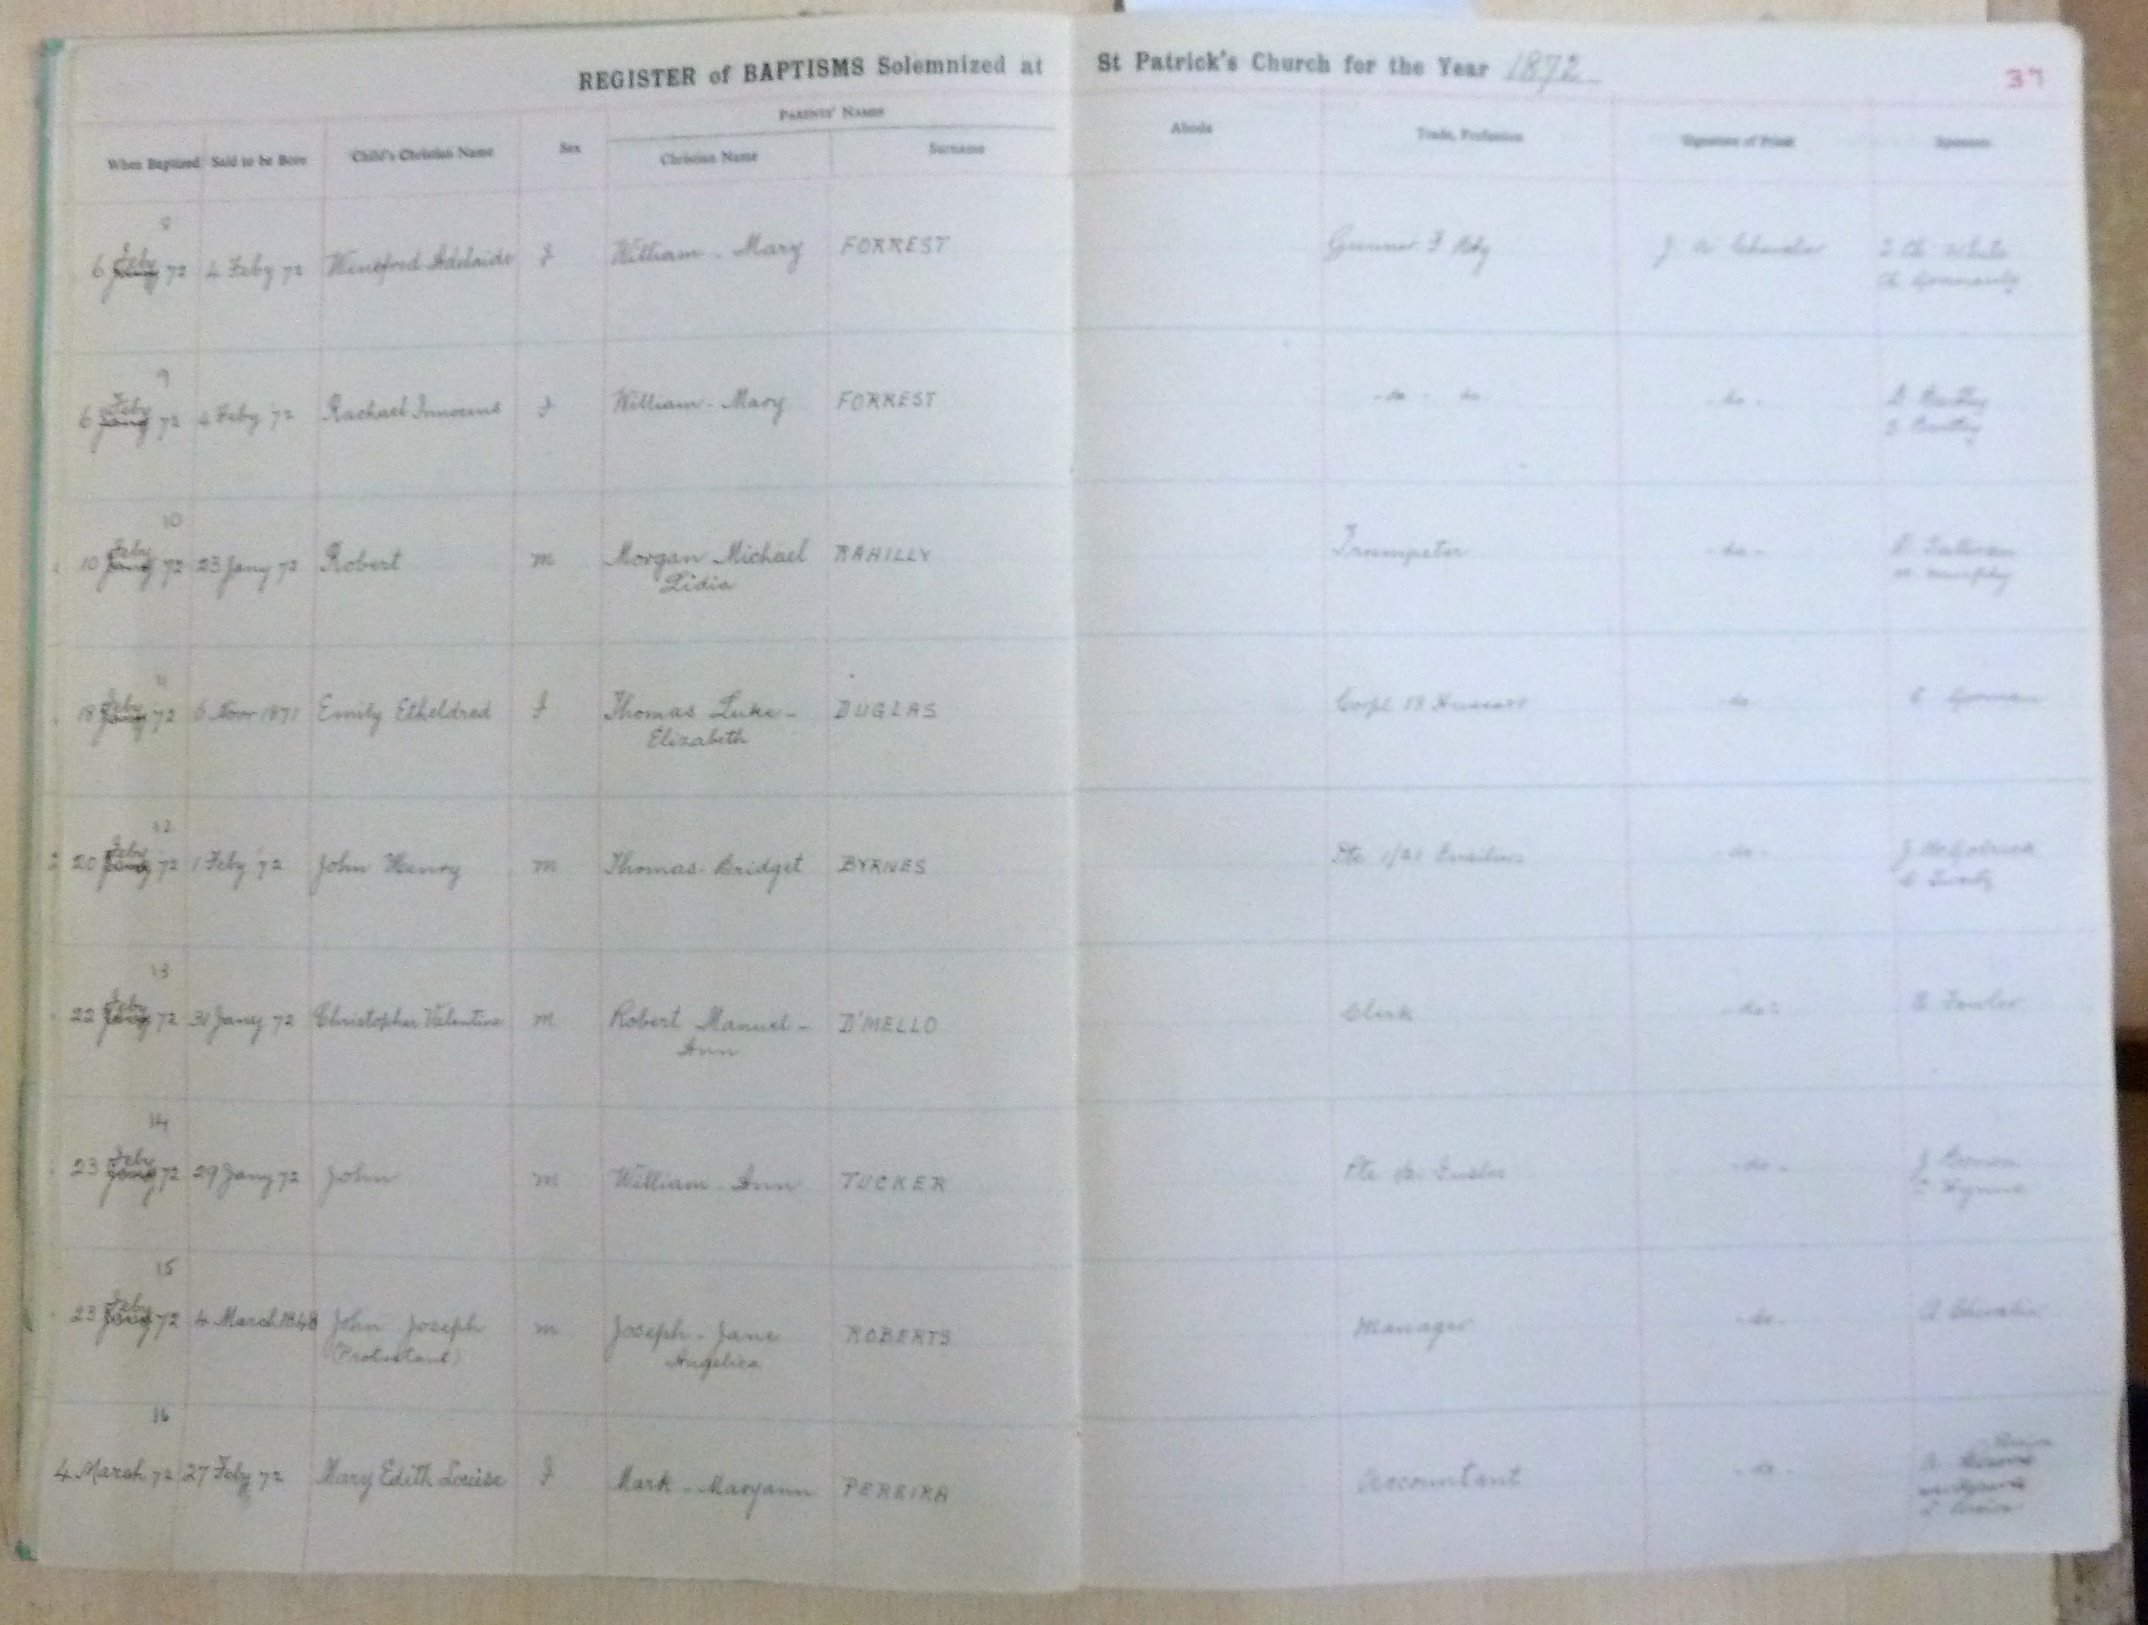 REGISTER of BAPTISMS Solemnized at St Patrick's Church for the Year 1872
37
PARENTS' NAMES
When Baptized Said to be Born Child's Christian Name Sex Christian Name Surname Abode Trade, Profession Signature of Priest Sponsors
8
6 Feby Jany 72 4 Feby 72 Winefred Adelaide f William - Mary FORREST Gunner F Bty
9
6 Feby Jany 72 4 Feby 72 Rachael f William - Mary FORREST - do - do - do -
10
10 Feby Jany 72 23 Jany 72 Robert m Morgan Michael RAHILLY Trumpeter - do -
Lidia Murphy
11
18 Feby Jany 72 6 Novr 1871 Emily Etheldred f Thomas Luke - DUGLAS Corpl 19 Hussars do
Elizabeth
12
20 Feby Jany 72 1 Feby 72 John Henry m Thomas - Bridget BYRNES Pte 1/21 Fusiliers - do -
13
22 Feby Jany 72 31 Jany 72 Christopher Valentine m Robert Manuel - D'MELLO Clerk - do -
Ann
14
23 Feby Jany 72 29 Jany 72 John m William - Ann TUCKER Pte - do -
15
23 Feby Jany 72 4 March 1848 John Joseph m Joseph - Jane ROBERTS Manager - do -
(Protestant) Angelica
16
4 March 72 27 Feby 72 Mary Edith Louise f Mark - Maryann PEREIRA Accountant - do -